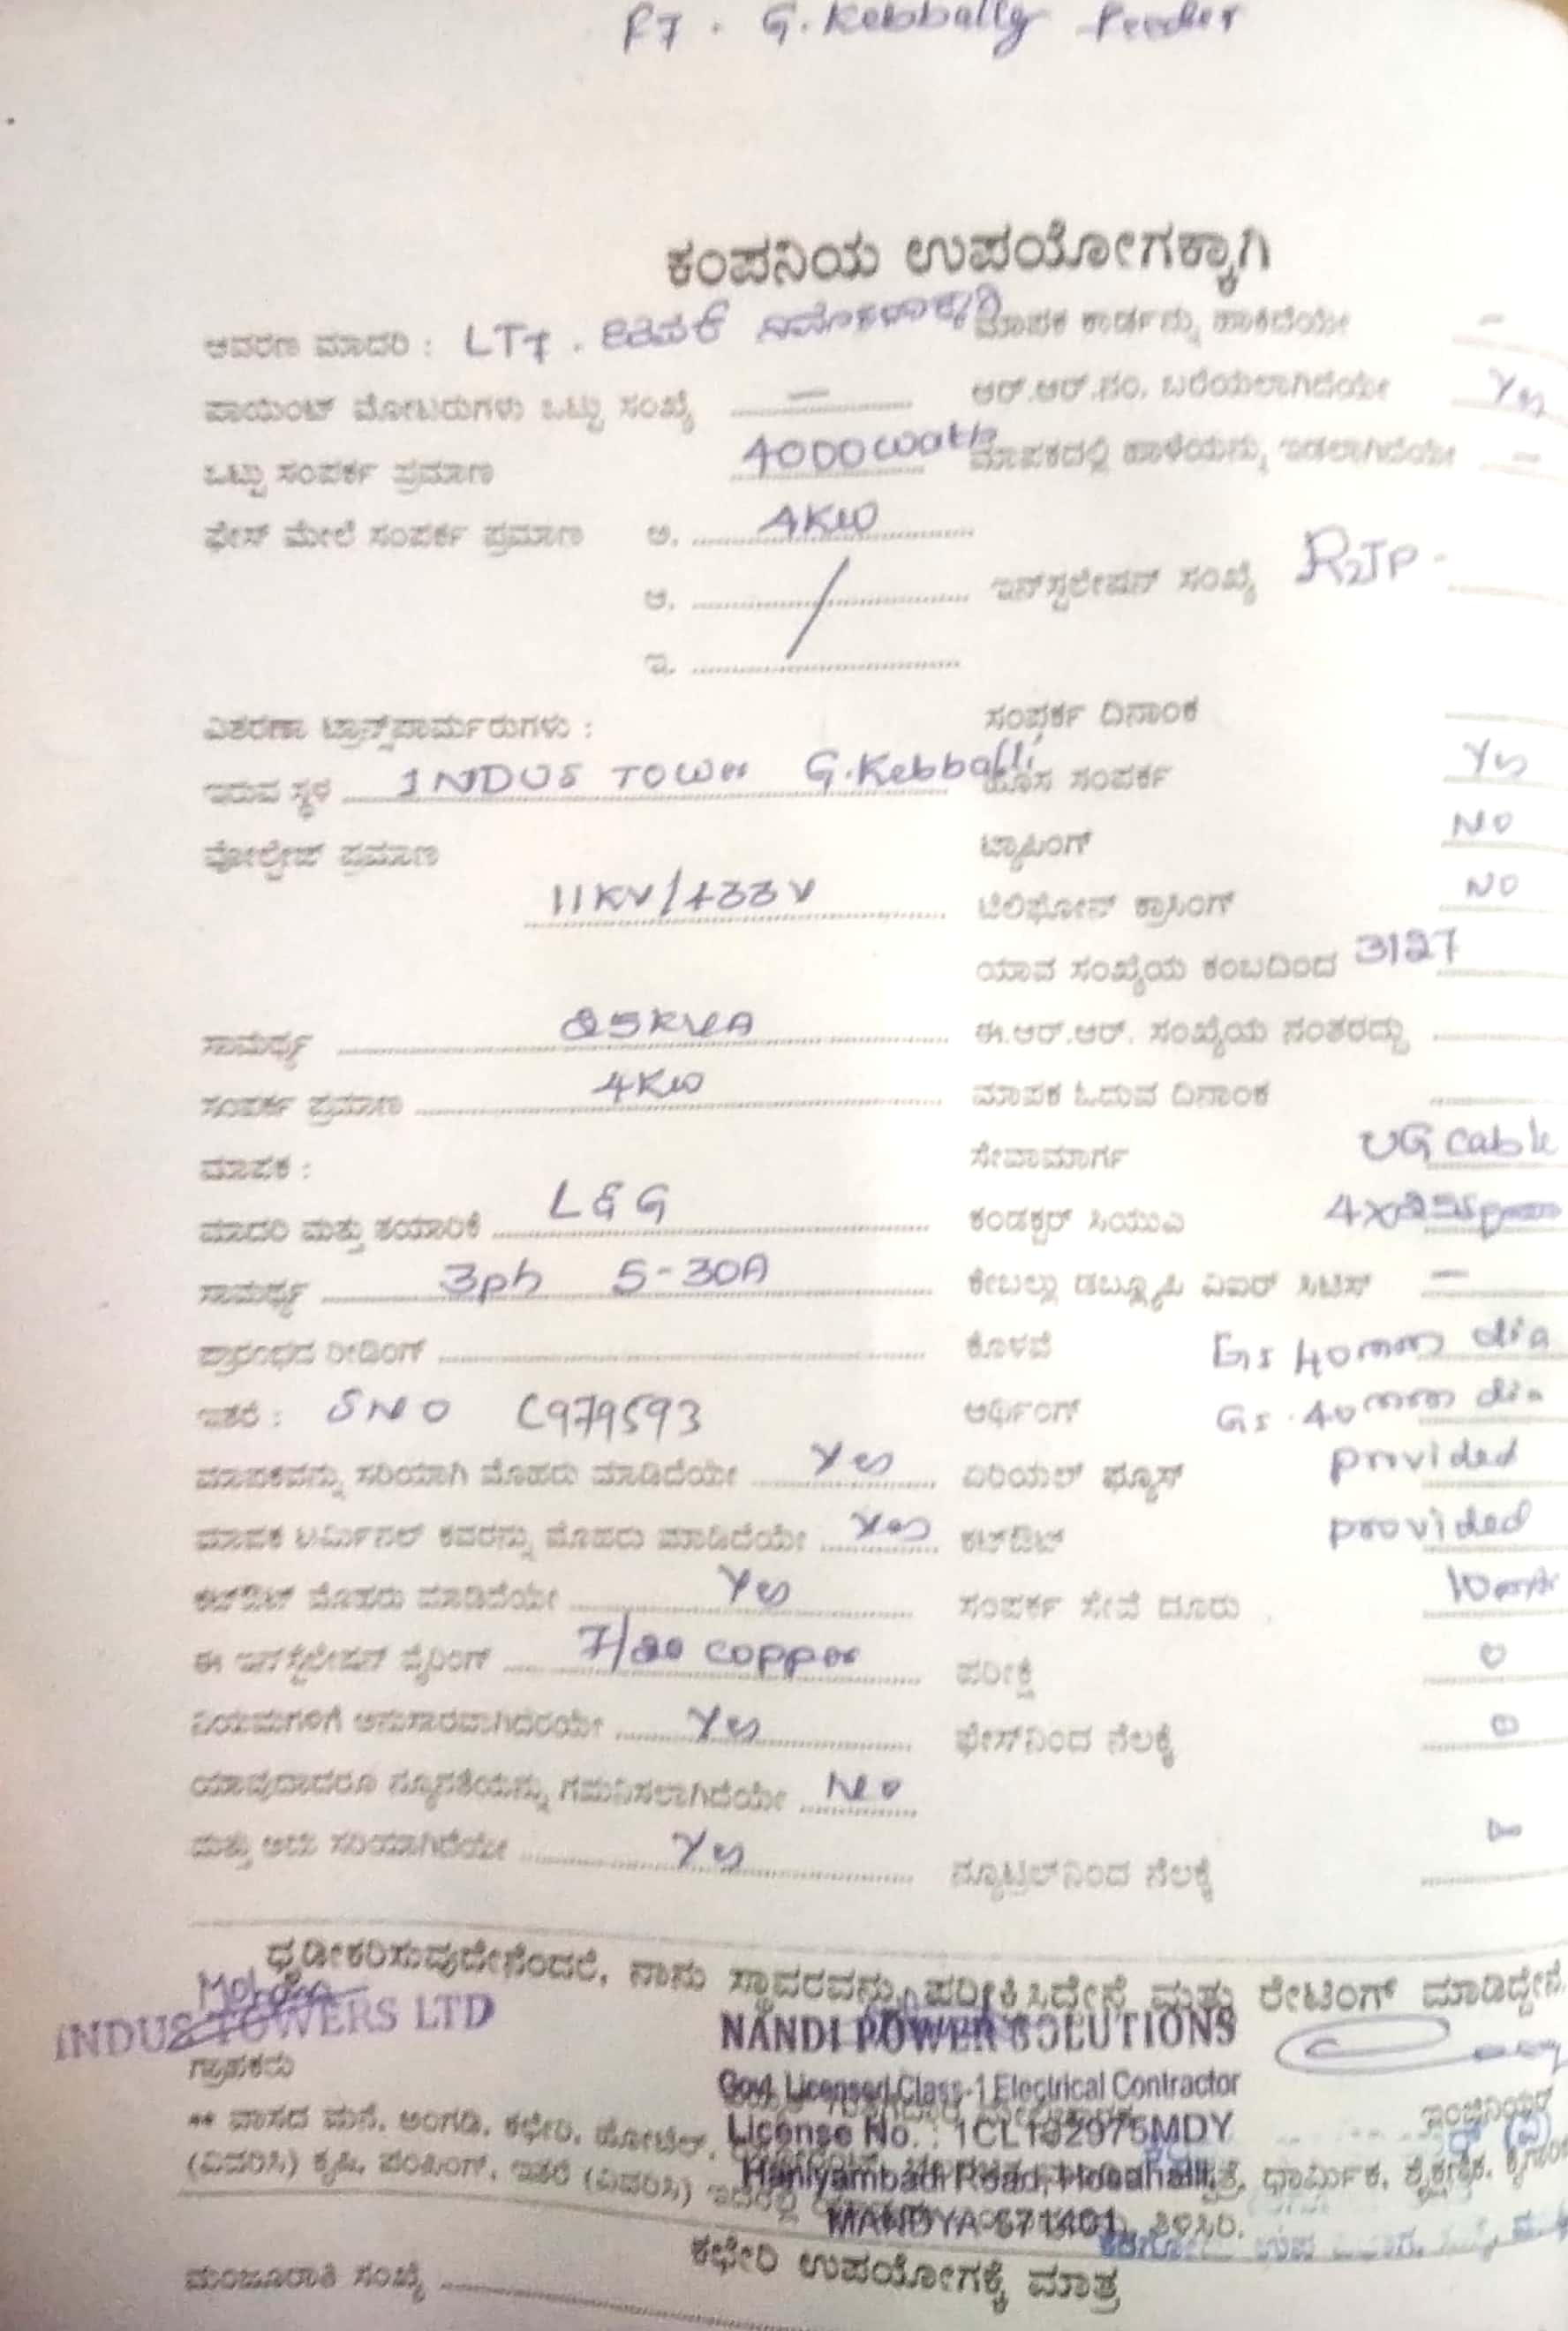 F7. G. Kebbally Feeder
ಕಂಪನಿಯ ಉಪಯೋಗಕ್ಕಾಗಿ
ಆವರಣ ಮಾದರಿ : LT7. ಮಾಪಕ ಕಾರ್ಡನ್ನು ಹಾಕಿದೆಯೇ —
ಪಾಯಿಂಟ್ ಮೋಟರುಗಳು ಒಟ್ಟು ಸಂಖ್ಯೆ — ಆರ್.ಆರ್.ನಂ. ಬರೆಯಲಾಗಿದೆಯೇ Yes
ಒಟ್ಟು ಸಂಪರ್ಕ ಪ್ರಮಾಣ 4000 watts ಮಾಪಕದಲ್ಲಿ ಹಾಳೆಯನ್ನು ಇಡಲಾಗಿದೆಯೇ —
ಫೇಸ್ ಮೇಲೆ ಸಂಪರ್ಕ ಪ್ರಮಾಣ ಅ. 4KW
ಆ. ಇನ್‌ಸ್ಟಲೇಷನ್ ಸಂಖ್ಯೆ
ಇ.
ವಿತರಣಾ ಟ್ರಾನ್ಸ್‌ಫಾರ್ಮರುಗಳು : ಸಂಪರ್ಕ ದಿನಾಂಕ
ಇರುವ ಸ್ಥಳ INDUS Tower G.Kebballi ಹೊಸ ಸಂಪರ್ಕ Yes
ವೋಲ್ಟೇಜ್ ಪ್ರಮಾಣ ಟ್ಯಾಪಿಂಗ್ NO
11KV/433V ಟೆಲಿಫೋನ್ ಕ್ರಾಸಿಂಗ್ NO
ಯಾವ ಸಂಖ್ಯೆಯ ಕಂಬದಿಂದ 3127
ಸಾಮರ್ಥ್ಯ 25KVA ಈ.ಆರ್.ಆರ್. ಸಂಖ್ಯೆಯ ನಂತರದ್ದು
ಸಂಪರ್ಕ ಪ್ರಮಾಣ 4KW ಮಾಪಕ ಓದುವ ದಿನಾಂಕ
ಮಾಪಕ : ಸೇವಾಮಾರ್ಗ UG Cable
ಮಾದರಿ ಮತ್ತು ತಯಾರಿಕೆ L&G ಕಂಡಕ್ಟರ್ ಸಿಯುಎ
ಸಾಮರ್ಥ್ಯ 3ph 5-30A ಕೇಬಲ್ಲು ಡಬ್ಲ್ಯೂಪಿ ವಿಐಆರ್ ಸಿಟಿಎಸ್ —
ಪ್ರಾರಂಭದ ರೀಡಿಂಗ್ ಕೊಳವೆ GI 40mm dia
ಇತರೆ : SNO C979593 ಅರ್ಥಿಂಗ್ GI. 40mm dia
ಮಾಪಕವನ್ನು ಸರಿಯಾಗಿ ಮೊಹರು ಮಾಡಿದೆಯೇ Yes ಏರಿಯಲ್ ಫ್ಯೂಸ್ provided
ಮಾಪಕ ಟರ್ಮಿನಲ್ ಕವರನ್ನು ಮೊಹರು ಮಾಡಿದೆಯೇ Yes ಕಟ್‌ಔಟ್ provided
ಕಟ್‌ಔಟ್ ಮೊಹರು ಮಾಡಿದೆಯೇ Yes ಸಂಪರ್ಕ ಸೇವೆ ದೂರು
ಈ ಇನ್‌ಸ್ಟಲೇಷನ್ ವೈರಿಂಗ್ 7/20 copper ಪರೀಕ್ಷೆ 0
ನಿಯಮಗಳಿಗೆ ಅನುಸಾರವಾಗಿದೆಯೇ Yes ಫೇಸ್‌ನಿಂದ ನೆಲಕ್ಕೆ
ಯಾವುದಾದರೂ ನ್ಯೂನತೆಯನ್ನು ಗಮನಿಸಲಾಗಿದೆಯೇ No
ಮತ್ತು ಅದು ಸರಿಯಾಗಿದೆಯೇ Yes ನ್ಯೂಟ್ರಲ್‌ನಿಂದ ನೆಲಕ್ಕೆ
ಧೃಡೀಕರಿಸುವುದೇನೆಂದರೆ, ನಾನು ಸ್ಥಾವರವನ್ನು ಪರೀಕ್ಷಿಸಿದ್ದೇನೆ ಮತ್ತು ರೇಟಿಂಗ್ ಮಾಡಿದ್ದೇನೆ.
INDUS TOWERS LTD NANDI POWER SOLUTIONS
ಗ್ರಾಹಕರು Govt. Licensed Class-1 Electrical Contractor ಇಂಜಿನಿಯರ್
** ವಾಸದ ಮನೆ, ಅಂಗಡಿ, ಕಛೇರಿ, ಹೋಟೆಲ್, License No. : 1CL192975MDY
(ವಿವರಿಸಿ) ಕೃಷಿ, ಪಂಪಿಂಗ್, ಇತರೆ (ವಿವರಿಸಿ) Haniyambadi Road, Hosahalli, ಧಾರ್ಮಿಕ, ಶೈಕ್ಷಣಿಕ,
MANDYA-571401. ತಿಳಿಸಿರಿ.
ಕಛೇರಿ ಉಪಯೋಗಕ್ಕೆ ಮಾತ್ರ
ಮಂಜೂರಾತಿ ಸಂಖ್ಯೆ